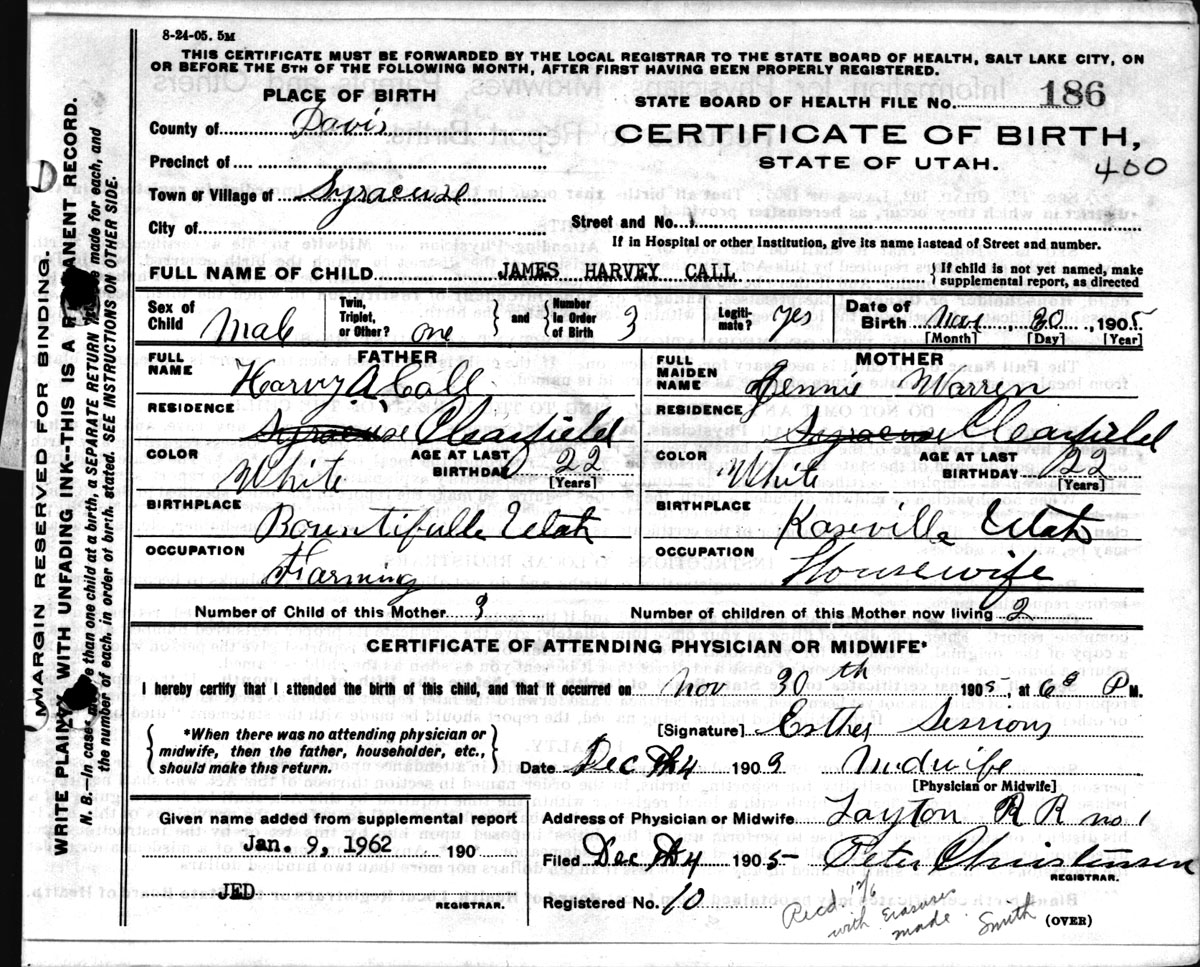 8-24-05. 5M
THIS CERTIFICATE MUST BE FORWARDED BY THE LOCAL REGISTRAR TO THE STATE BOARD OF HEALTH, SALT LAKE CITY, ON
OR BEFORE THE 5TH OF THE FOLLOWING MONTH, AFTER FIRST HAVING BEEN PROPERLY REGISTERED.
PLACE OF BIRTH
STATE BOARD OF HEALTH FILE NO. 186
County of Davis
CERTIFICATE OF BIRTH,
STATE OF UTAH.
400
Precinct of
Town or Village of Syracuse
City of
Street and No.
If in Hospital or other Institution, give its name instead of Street and number.
FULL NAME OF CHILD JAMES HARVEY CALL
{ If child is not yet named, make
supplemental report, as directed
Sex of Child Male
Twin, Triplet, or Other? one
{ and }
Number in Order of Birth 3
Legiti- mate? yes
Date of Birth Nov, 30, 1905
[Month] [Day] [Year]
FATHER
FULL NAME Harvy A. Call
RESIDENCE Syracuse Clearfield
COLOR White
AGE AT LAST BIRTHDAY 22
[Years]
BIRTHPLACE Bountifulle Utah
OCCUPATION Farming
MOTHER
FULL MAIDEN NAME Warren
RESIDENCE Syracuse Clearfield
COLOR Whit
AGE AT LAST BIRTHDAY 22
[Years]
BIRTHPLACE Kaseville Utah
OCCUPATION Housewife
Number of Child of this Mother 3
Number of children of this Mother now living 2
CERTIFICATE OF ATTENDING PHYSICIAN OR MIDWIFE*
I hereby certify that I attended the birth of this child, and that it occurred on Nov 30th 1905, at 6 P M.
[Signature] Esther Sessions
{ *When there was no attending physician or
midwife, then the father, householder, etc.,
should make this return. }
Date Dec 4 1909 Midwife
[Physician or Midwife]
Given name added from supplemental report
Jan. 9, 1962 190
JED
REGISTRAR.
Address of Physician or Midwife Layton R R no 1
Filed Dec 4 1905 Peter Christensen
REGISTRAR.
Registered No. 10
Recd 1 76
with erasures
made. Smith
(OVER)
MARGIN RESERVED FOR BINDING.
WRITE PLAINLY WITH UNFADING INK--THIS IS A PERMANENT RECORD.
N. B.—In case more than one child at a birth, a SEPARATE RETURN must be made for each, and
the number of each, in order of birth, stated. SEE INSTRUCTIONS ON OTHER SIDE.